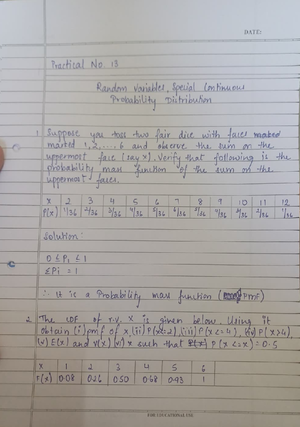 DATE:
Practical No. 13
Random Variables, Special Continuous
Probability Distribution
1. Suppose you toss two fair dice with faces
marked 1,2,....6 and observe the sum on the
uppermost face (say X). Verify that following is the
probability mass function of the sum on the
uppermost faces.
X 2 3 4 5 6 7 8 9 10 11 12
P(X) 1/36 2/36 3/36 4/36 5/36 6/36 5/36 4/36 3/36 2/36 1/36
Solution:
0 ≤ Pi ≤ 1
ΣPi = 1
∴ It is a Probability mass function (PMF)
2. The CDF of r.v. X is given below. Using it
obtain (i) pmf of X (ii) P(X<2) (iii) P(X<=4), (iv) P(X>4),
(v) E(X) and V(X) (vi) x such that P(X<=x) = 0.5
X 1 2 3 4 5 6
F(X) 0.08 0.26 0.50 0.68 0.93 1